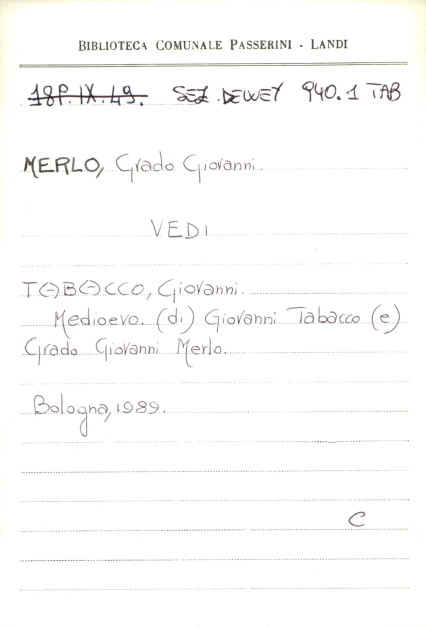 BIBLIOTECA COMUNALE PASSERINI - LANDI
18P.IX.49. SEZ. DEWEY 940.1 TAB
MERLO, Grado Giovanni.
VEDI
TABACCO, Giovanni.
Medioevo. (di) Giovanni Tabacco (e)
Grado Giovanni Merlo.
Bologna, 1989.
C